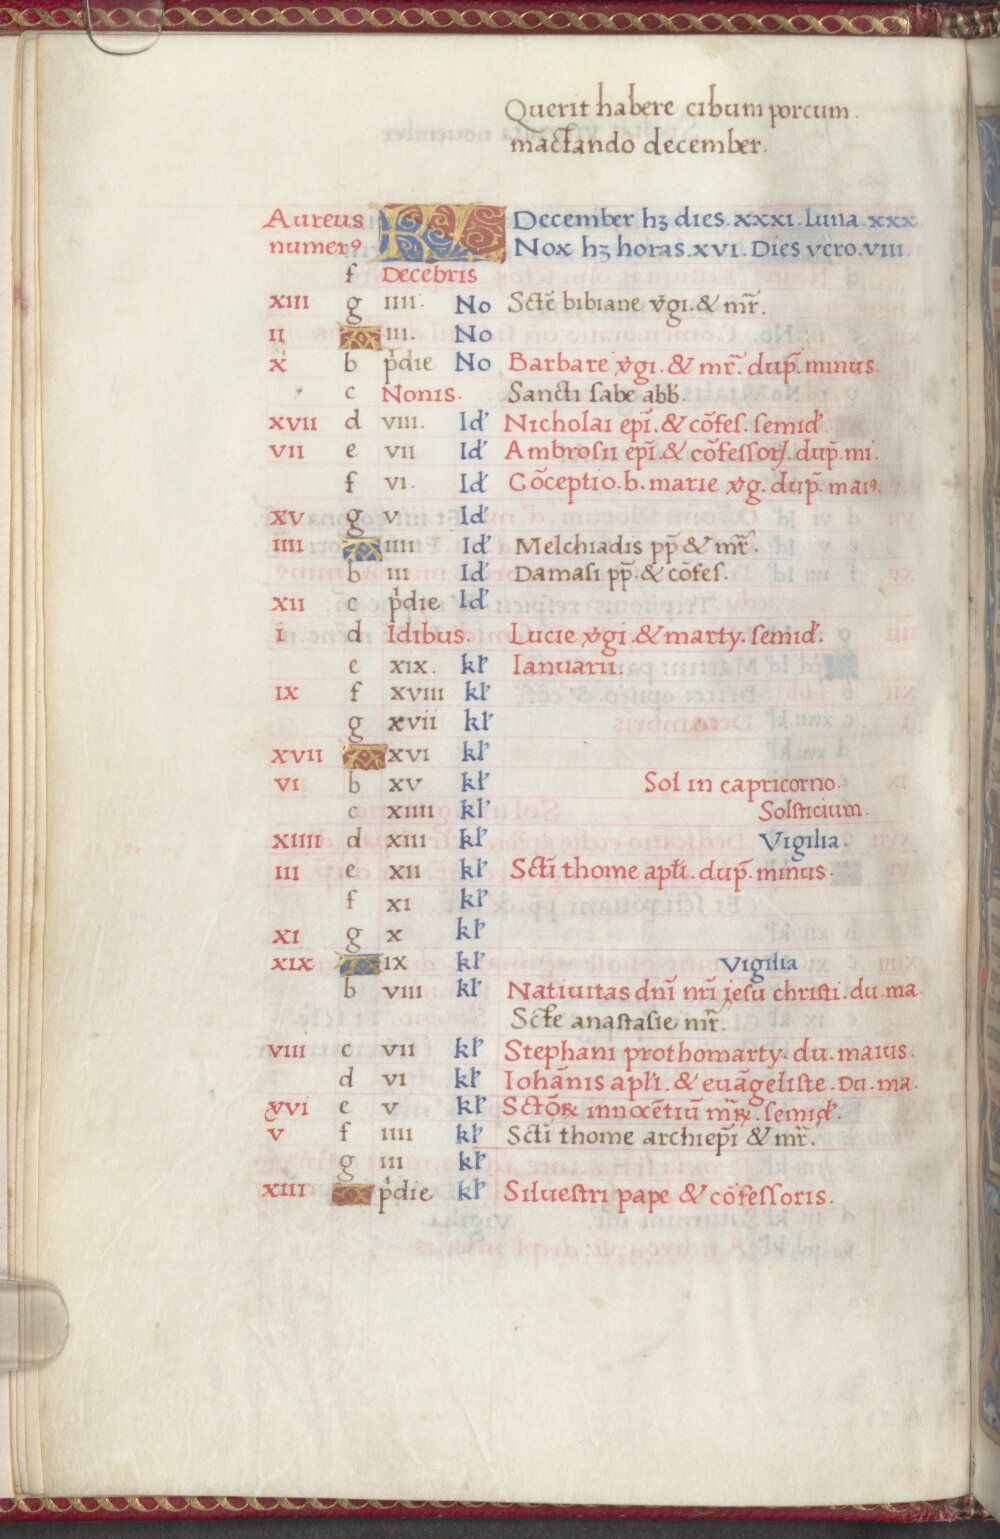 Querit habere cibum porcum
mactando december.
Aureus KL December hꝫ dies. xxxı. luna. xxx
numerꝰ Nox hꝫ horas. xvı. Dies vero. vııı.
f Decẽbris
xııı g ıııı. No Sctẽ bibiane v̾gı. & mr̃.
ıı A ııı. No
x b pͥdie No Barbare v̾gı. & mr̃. dup̃. minus
c Nonis. Sancti sabe abb̾.
xvıı d vııı. Id̾ Nicholai epĩ. & cõfes. semid̾.
vıı e vıı Id̾ Ambrosii epĩ. & cõfessorꝭ. dup̃. mi.
f vı. Id̾ Cõceptio. b. marie v̾g. dup̃. maiꝰ.
xv g v Id̾
ıııı A ıııı Id̾ Melchiadis pp̃ & mr̃.
b ııı Id̾ Damasi pp̃. & cõfes.
xıı c pͥdie Id̾
ı d Idibus. Lucie v̾gi. & marty. semid̾.
e xıx. kl̾ Ianuarii.
ıx f xvııı kl̾
g xvıı kl̾
xvıı A xvı kl̾
vı b xv kl̾ Sol in capricorno.
c xıııı kl̾ Solsticium.
xıııı d xııı kl̾ Vigilia.
ııı e xıı kl̾ Sctĩ thome apl̾i. dup̃. minus.
f xı kl̾
xı g x kl̾
xıx A ıx kl̾ Vigilia
b vııı kl̾ Natiuitas dnĩ nrĩ jesu christi. du. ma.
Sctẽ anastasie mr̃.
vııı c vıı kl̾ Stephani prothomarty. du. maius.
d vı kl̾ Iohãnis apl̾i. & euãgeliste. Du. ma.
xvı e v kl̾ Sctõꝝ innocẽtiũ mr̃ꝝ. semid̾.
v f ıııı kl̾ Sctĩ thome archiepĩ & mr̃.
g ııı kl̾
xııı A pͥdie kl̾ Siluestri pape & cõfessoris.